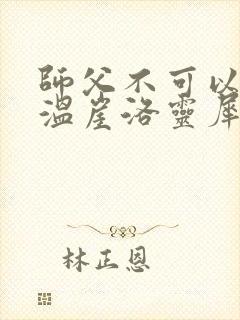 師父不可以
溫崖洛靈犀
林正恩